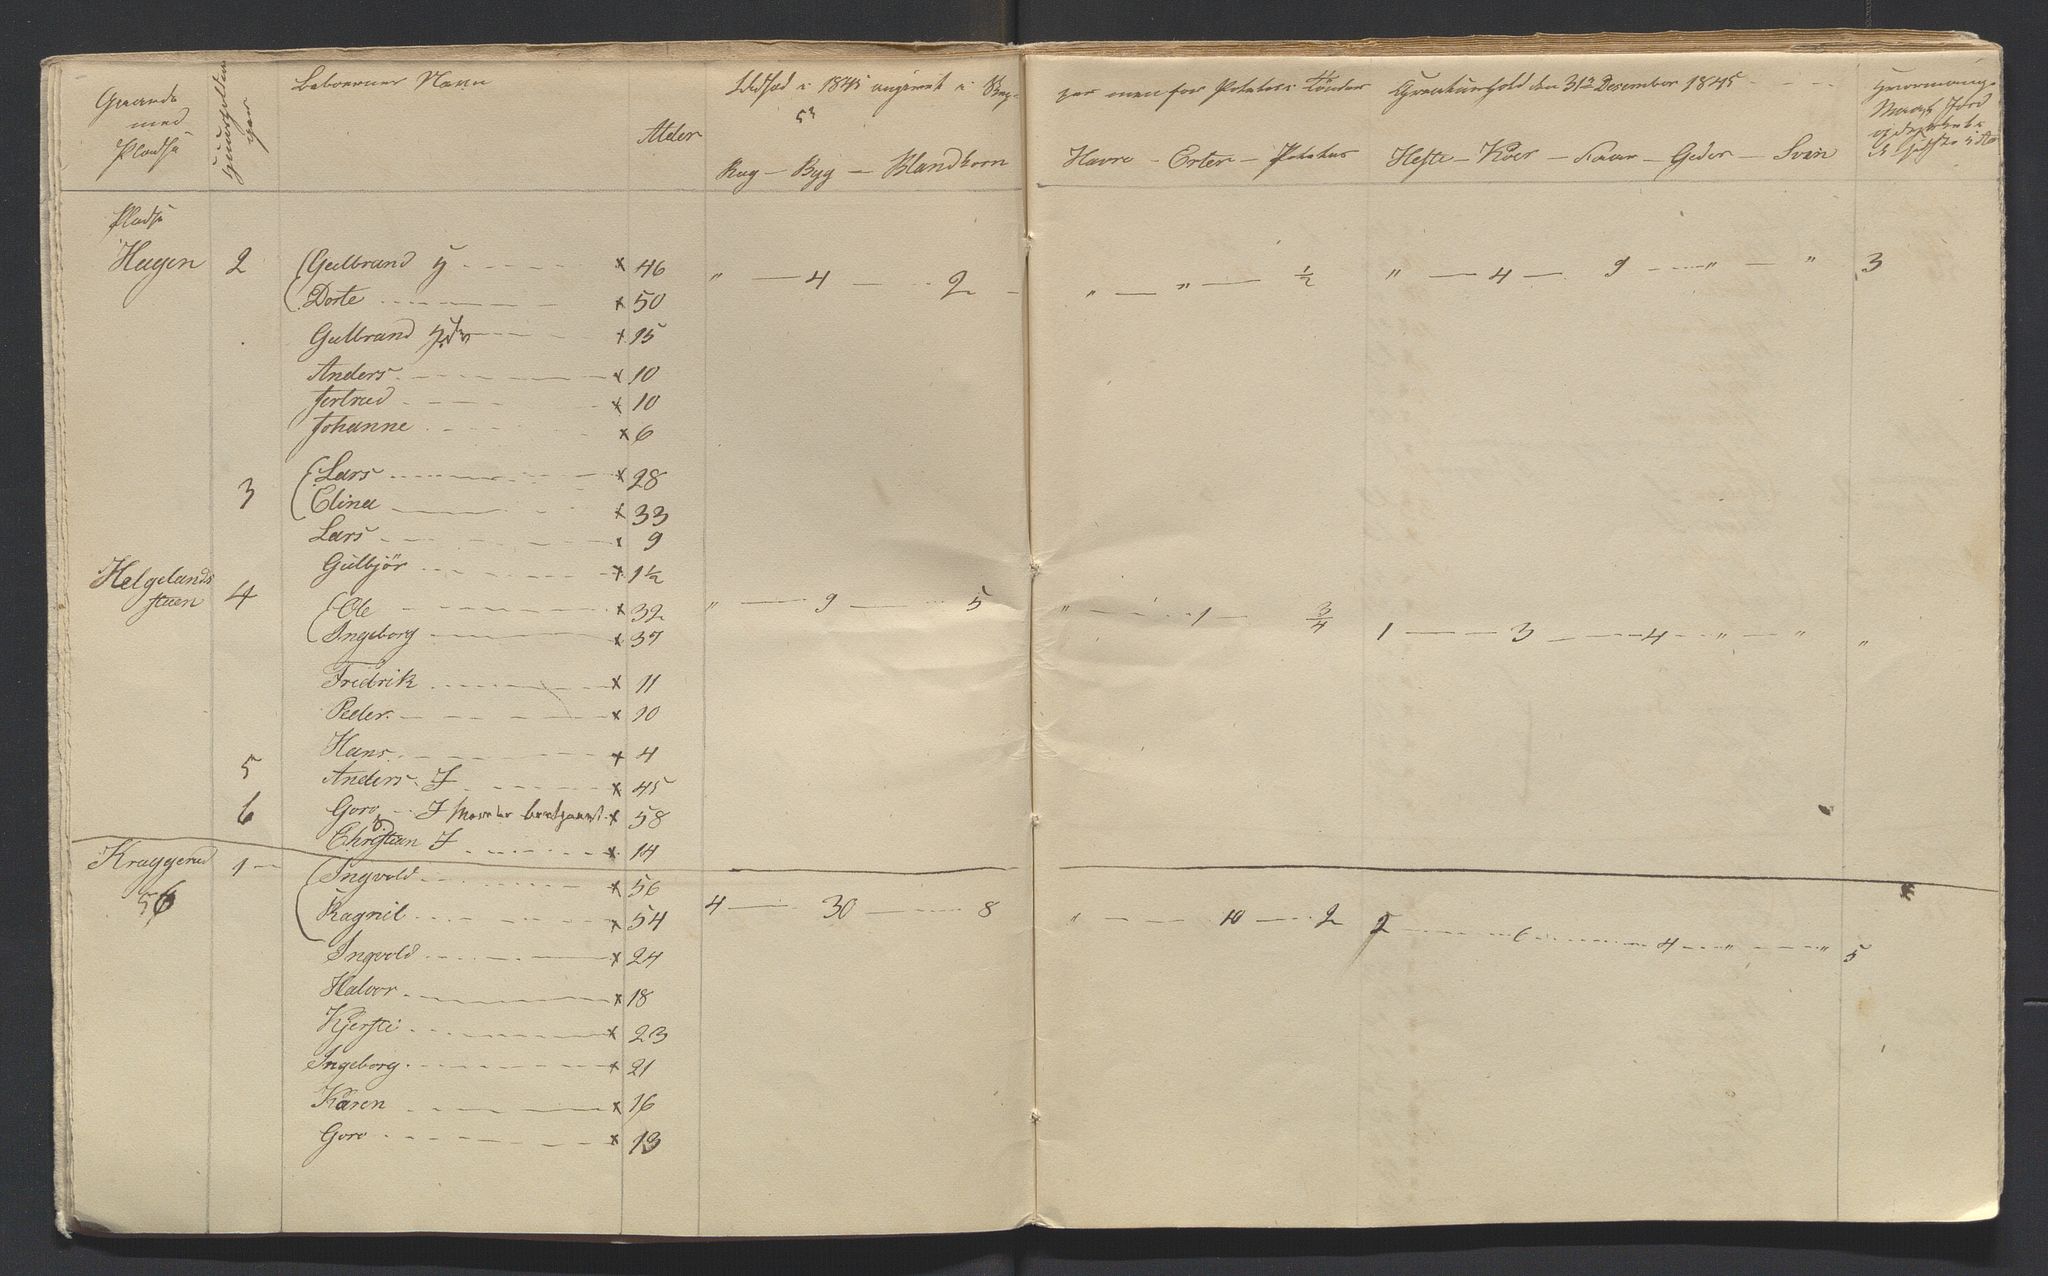 Gaarde
med
Pladse
Beboernes Navn
Alder
Udsæd i 1845 angivet i
Rug — Byg — Blandkorn
Potetes i Tønder
Creaturhold den 31te Desember 1845
Havre — Erter — Potetes
Hefte — Køer — Faar — Geder — Svin
Pladse
Hagen 2 Gulbrand × 46 " — 4 — 2 — " — " — ½ " — 4 — 9 — " — " 3
Dorte × 50
Gulbrand × 15
Anders × 10
Jertrud × 10
Johanne × 6
3 Lars × 28
Elina × 33
Lars × 9
Gulbjör × 1½
Helgelands
stuen 4 Ole × 32 " — 9 — 5 " — 1 — ¾ 1 — 3 — 4 — " — " "
Ingeborg × 37
Fredrik × 11
Peder × 10
Hans × 4
5 Anders I × 45
6 Goro I × 58
Christian I × 14
Kraggerud 1 Ingvold × 56
56 Ragnil × 54 4 — 30 — 8 " — 10 — 2 2 — 6 — 4 — " — " 5
Ingvold × 24
Halvor × 18
Kjersti × 23
Ingeborg × 21
Karen × 16
Goro × 13